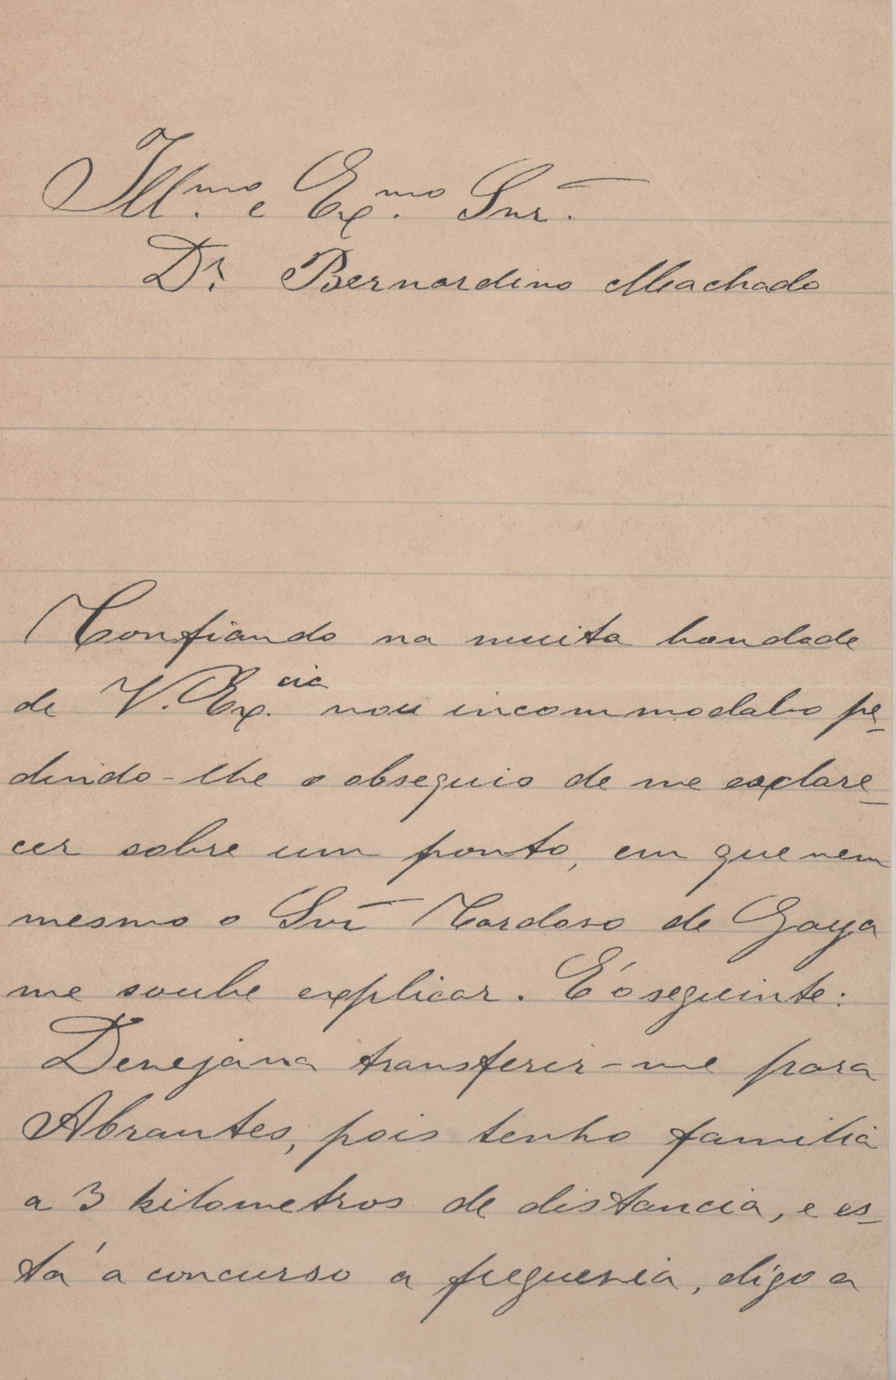 Ill.mo e Ex.mo Snr.
Dr. Bernardino Machado
Confiando na muita bondade
de V. Ex.cia vou incommodal-o pe-
dindo-lhe o obsequio de me esclare-
cer sobre um ponto, em que nem
mesmo o Snr Cardoso de Gaya
me soube explicar. É o seguinte:
Desejava transferir-me para
Abrantes, pois tenho familia
a 3 kilometros de distancia, e es-
tá a concurso a freguesia, digo a